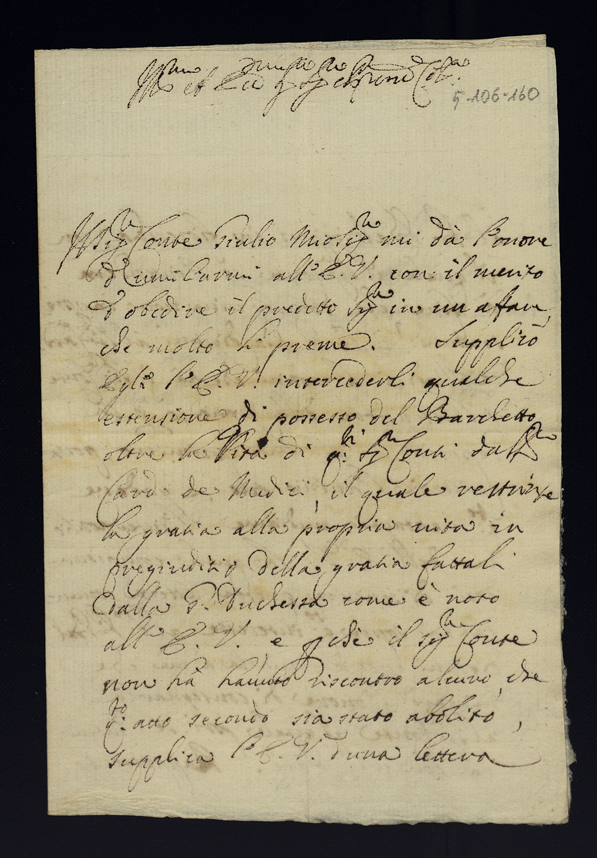 Ill.mo et Ecc.mo Sig.r Sig.r e P.rone Col.mo
5-106-160
Il Sig.r Conte Giulio mio Sig.re mi dà l'onore
d'umiliarmi all'E.V. con il merito
d'obedire il predetto Sig.re in un affare,
che molto li preme. Supplicò
Egli l'E.V. intercederli qualche
estensione di possesso del Barchetto
oltre la Vita di q.li Sig.ri Conti dal Sig.re
Card. de Medici, il quale restrinse
la gratia alla propria vita in
pregiuditio della gratia fattali
dalla G. Duchessa come è noto
all'E.V. e perche il Sig.r Conte
non hà havuto riscontro alcuno, che
q.to atto secondo sia stato abolito,
supplica l'E.V. d'una lettera